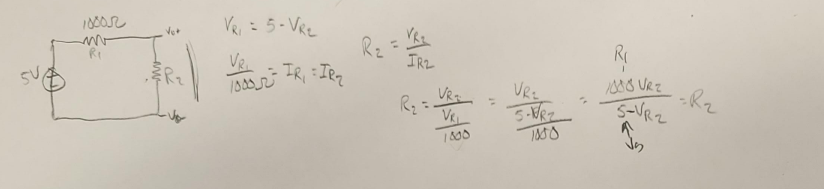 1000Ω
R1
5V
Vo+
R2
Vo-
V_R1 = 5 - V_R2
V_R1/1000Ω = I_R1 = I_R2
R2 = V_R2/I_R2
R2 = V_R2/(V_R1/1000) = V_R2/((5-V_R2)/1000) = 1000 V_R2/(5-V_R2) = R2
R1
Vs